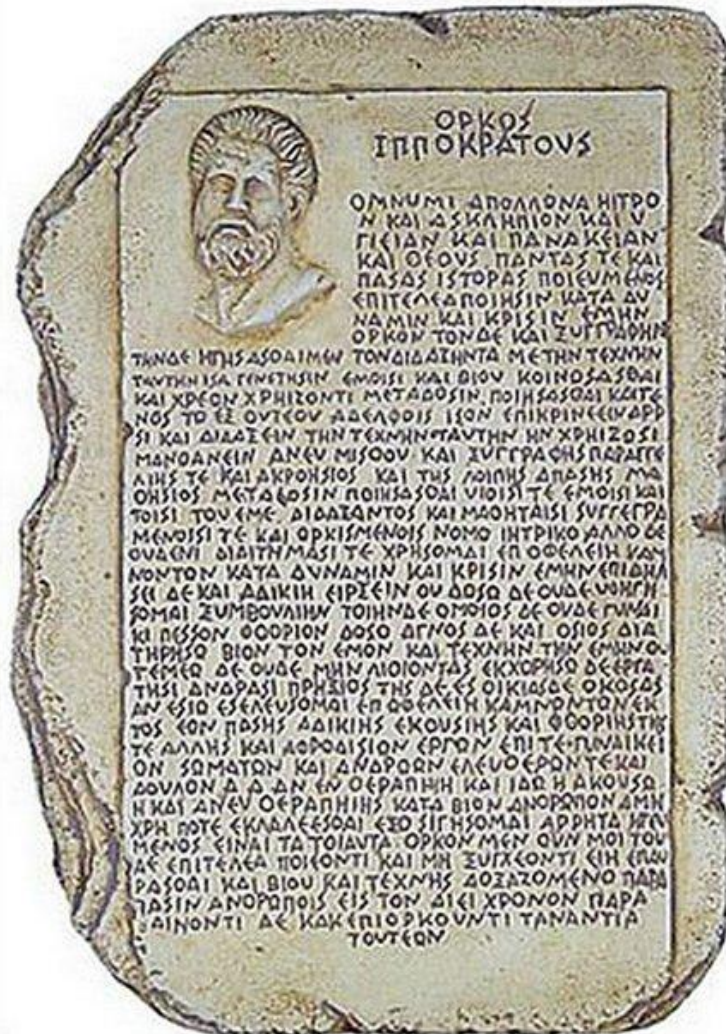 ΟΡΚΟS
ΙΠΠΟΚΡΑΤΟUS
ΟΜΝUΜΙ ΑΠΟΛΛΩΝΑ ΗΙΤΡΟ
Ν ΚΑΙ ΑSΚΛΗΠΙΟΝ ΚΑΙ U
ΓΙΕΙΑΝ ΚΑΙ ΠΑΝΑΚΕΙΑΝ
ΚΑΙ ΘΕΟUS ΠΑΝΤΑS ΤΕ ΚΑΙ
ΠΑSΑS ΙSΤΟΡΑS ΠΟΙΕUΜΕΝΟS
ΕΠΙΤΕΛΕΑ ΠΟΙΗSΙΝ ΚΑΤΑ ΔU
ΝΑΜΙΝ ΚΑΙ ΚΡΙSΙΝ ΕΜΗΝ
ΟΡΚΟΝ ΤΟΝΔΕ ΚΑΙ ΞUΓΓΡΑΦΗΝ
ΤΗΝΔΕ ΤΟΝ ΔΙΔΑΞΗΝΤΑ ΜΕ ΤΗΝ ΤΕΧΝΗΝ
ΤΑUΤΗΝ ΙSΑ ΓΕΝΕΤΗSΙΝ ΕΜΟΙSΙ ΚΑΙ ΒΙΟU ΚΟΙΝΟSΑSΘΑΙ
ΚΑΙ ΧΡΕΟΝ ΧΡΗΙΖΟΝΤΙ ΜΕΤΑΔΟSΙΝ ΠΟΙΗSΑSΘΑΙ ΚΑΙ ΓΕ
ΝΟS ΤΟ ΕΞ ΟUΤΕΟU ΑΔΕΛΦΟΙS ΙSΟΝ ΕΠΙΚΡΙΝΕΕΙΝ ΑΡΡ
SΙ ΚΑΙ ΔΙΔΑΞΕΙΝ ΤΗΝ ΤΕΧΝΗΝ ΤΑUΤΗΝ ΗΝ ΧΡΗΙΖΟSΙ
ΜΑΝΘΑΝΕΙΝ ΑΝΕU ΜΙSΘΟU ΚΑΙ ΞUΓΓΡΑΦΗS ΠΑΡΑΓΓΕ
ΛΙΗS ΤΕ ΚΑΙ ΑΚΡΟΗSΙΟS ΚΑΙ ΤΗS ΛΟΙΠΗS ΑΠΑSΗS ΜΑ
ΘΗSΙΟS ΜΕΤΑΔΟSΙΝ ΠΟΙΗSΑSΘΑΙ UΙΟΙSΙ ΤΕ ΕΜΟΙSΙ ΚΑΙ
ΤΟΙSΙ ΤΟU ΕΜΕ ΔΙΔΑΞΑΝΤΟS ΚΑΙ ΜΑΘΗΤΑΙSΙ SUΓΓΕΓΡΑ
ΜΕΝΟΙSΙ ΤΕ ΚΑΙ ΟΡΚΙSΜΕΝΟΙS ΝΟΜΩ ΙΗΤΡΙΚΟ ΑΛΛΟ ΔΕ
ΟUΔΕΝΙ ΔΙΑΙΤΗΜΑSΙ ΤΕ ΧΡΗSΟΜΑΙ ΕΠ ΟΦΕΛΕΙΗ ΚΑΜ
ΝΟΝΤΟΝ ΚΑΤΑ ΔUΝΑΜΙΝ ΚΑΙ ΚΡΙSΙΝ ΕΜΗΝ ΕΠΙ ΔΗΛ
SΕΙ ΔΕ ΚΑΙ ΑΔΙΚΙΗ ΕΙΡΞΕΙΝ ΟU ΔΟSΩ ΔΕ ΟUΔΕ UΦΗΓΗ
SΟΜΑΙ ΞUΜΒΟUΛΙΗΝ ΤΟΙΗΝΔΕ ΟΜΟΙΟS ΔΕ ΟUΔΕ ΓUΝΑΙ
ΚΙ ΠΕSSΟΝ ΦΘΟΡΙΟΝ ΔΟSΟ ΑΓΝΟS ΔΕ ΚΑΙ ΟSΙΟS ΔΙΑ
ΤΗΡΗSΩ ΒΙΟΝ ΤΟΝ ΕΜΟΝ ΚΑΙ ΤΕΧΝΗΝ ΤΗΝ ΕΜΗΝ ΟU
ΤΕΜΕΩ ΔΕ ΟUΔΕ ΜΗΝ ΛΙΘΙΟΝΤΑS ΕΚΧΟΡΗSΩ ΔΕ ΕΡΓΑ
ΤΗSΙ ΑΝΔΡΑSΙ ΠΡΗΞΙΟS ΤΗS ΔΕ ΕS ΟΙΚΙΑS ΔΕ ΟΚΟSΑS
ΑΝ ΕSΙΩ ΕSΕΛΕUSΟΜΑΙ ΕΠ ΩΦΕΛΕΙΗ ΚΑΜΝΟΝΤΟΝ ΕΚ
ΤΟS ΕΟΝ ΠΑSΗS ΑΔΙΚΙΗS ΕΚΟUSΙΗS ΚΑΙ ΦΘΟΡΙΗS ΤΗS
ΤΕ ΑΛΛΗS ΚΑΙ ΑΦΡΟΔΙSΙΟΝ ΕΡΓΩΝ ΕΠΙ ΤΕ ΓUΝΑΙΚΕΙ
ΟΝ SΩΜΑΤΩΝ ΚΑΙ ΑΝΔΡΩΩΝ ΕΛΕUΘΕΡΩΝ ΤΕ ΚΑΙ
ΔΟUΛΟΝ Α Δ ΑΝ ΕΝ ΘΕΡΑΠΗΙΗ Η ΙΔΩ Η ΑΚΟUSΩ
Η ΚΑΙ ΑΝΕU ΘΕΡΑΠΗΙΗS ΚΑΤΑ ΒΙΟΝ ΑΝΘΡΩΠΟΝ Α ΜΗ
ΧΡΗ ΠΟΤΕ ΕΚΛΑΛΕΕSΘΑΙ ΕΞΟ SΙΓΗSΟΜΑΙ ΑΡΡΗΤΑ ΗΓΕU
ΜΕΝΟS ΕΙΝΑΙ ΤΑ ΤΟΙΑUΤΑ ΟΡΚΟΝ ΜΕΝ ΟUΝ ΜΟΙ ΤΟU
ΔΕ ΕΠΙΤΕΛΕΑ ΠΟΙΕΟΝΤΙ ΚΑΙ ΜΗ ΞUΓΧΕΟΝΤΙ ΕΙΗ ΕΠΑU
ΡΑSΘΑΙ ΚΑΙ ΒΙΟU ΚΑΙ ΤΕΧΝΗS ΔΟΞΑΖΟΜΕΝΟ ΠΑΡΑ
ΠΑSΙΝ ΑΝΘΡΩΠΟΙS ΕΙS ΤΟΝ ΑΙΕΙ ΧΡΟΝΟΝ ΠΑΡΑ
ΑΙΝΟΝΤΙ ΔΕ ΚΑΚ ΕΠΙΟΡΚΟUΝΤΙ ΤΑΝΑΝΤΙΑ
ΤΟUΤΕΩΝ